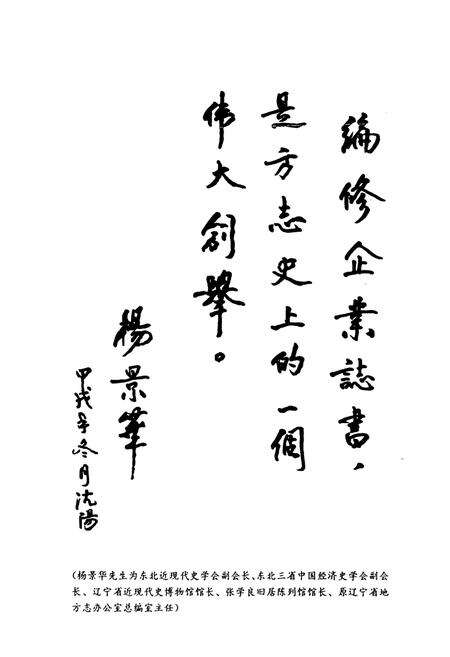 編修企業誌書，
是方志史上的一個
伟大創舉。
楊景華
甲戌年冬月沈陽
(杨景华先生为东北近现代史学会副会长、东北三省中国经济史学会副会
长、辽宁省近现代史博物馆馆长、张学良旧居陈列馆馆长、原辽宁省地
方志办公室总编室主任)